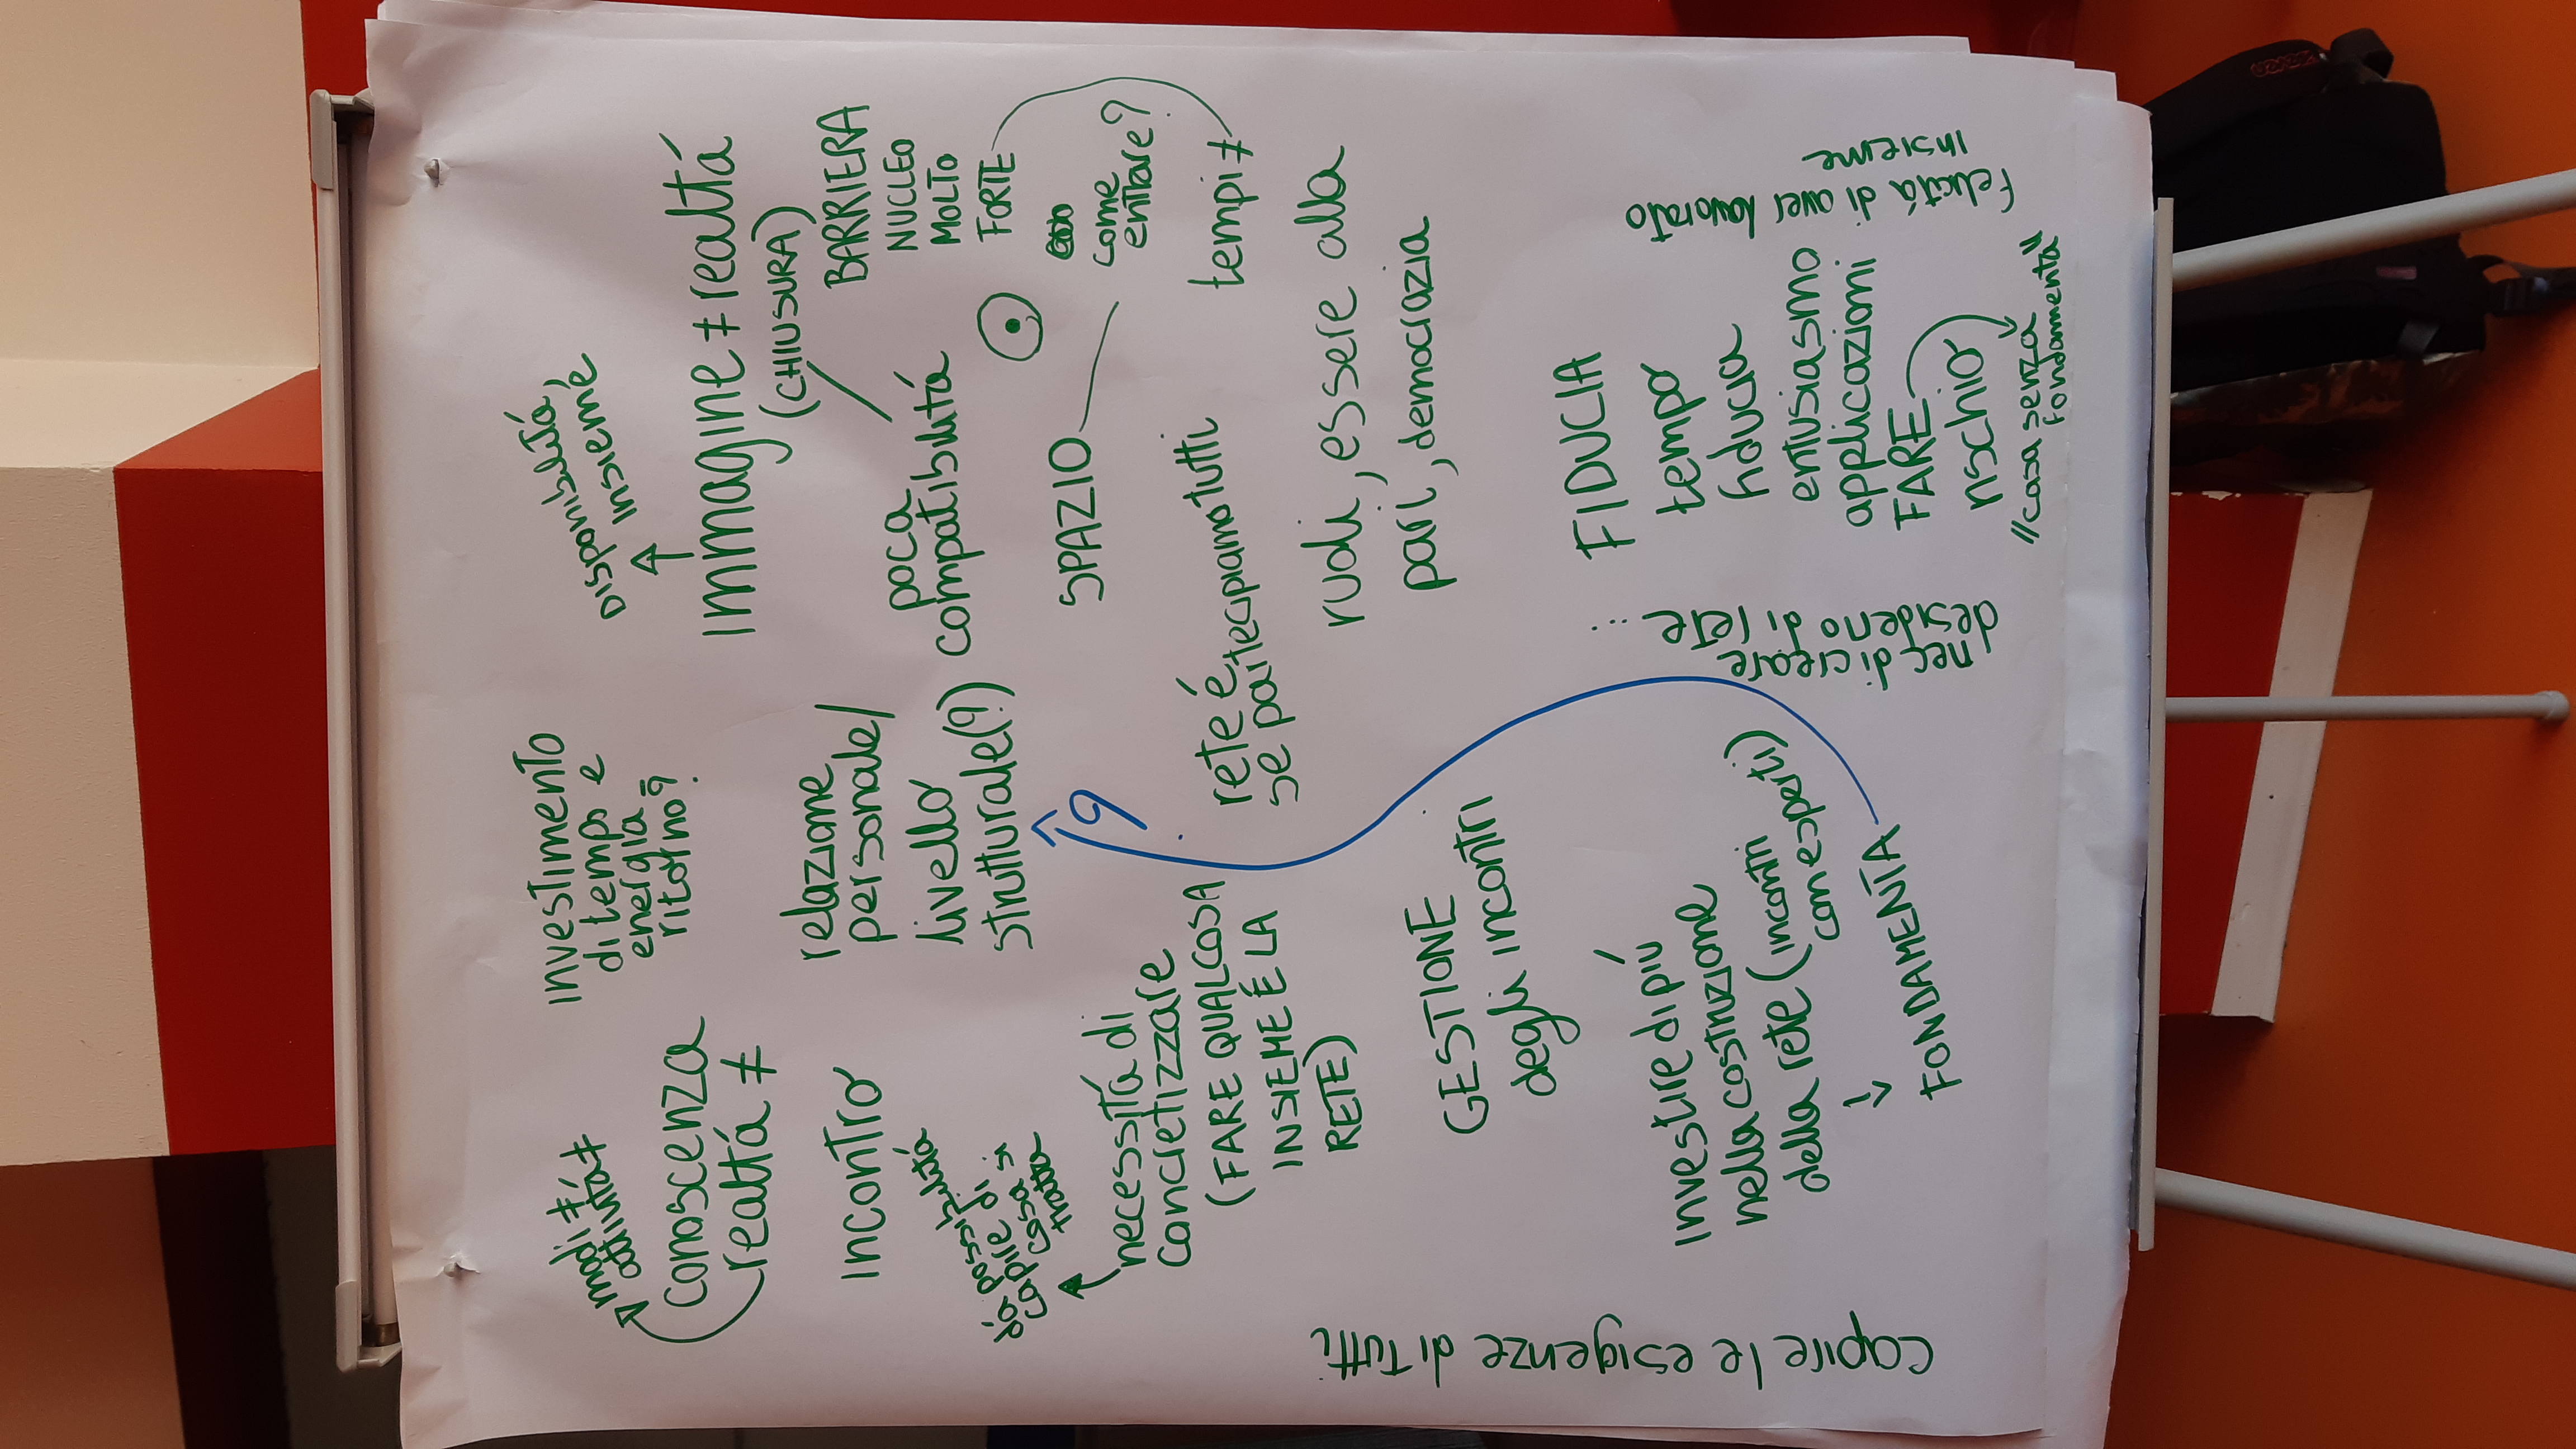 modi ≠
attività ≠
conoscenza
realtà ≠
investimento
di tempo e
energia
ritorno?
Disponibilità
insieme
immagine ≠ realtà
(CHIUSURA)
BARRIERA
NUCLEO
MOLTO
FORTE
come
entrare?
tempi ≠
incontro
dà possibilità
di capire di
cosa si
tratta
relazione
personale/
livello
strutturale(?)
poca
compatibilità
SPAZIO
necessità di
concretizzare
(FARE QUALCOSA
INSIEME È LA
RETE)
?
rete é
se partecipiamo tutti
ruoli, essere alla
pari, democrazia
GESTIONE
degli incontri
investire di più
nella costruzione
della rete (incontri
con esperti)
FONDAMENTA
FIDUCIA
tempo
fiducia
entusiasmo
applicazioni
FARE
rischio
"casa senza
fondamenta"
capire le esigenze di tutti
nec di creare
desiderio di rete ...
felicità di aver lavorato
insieme